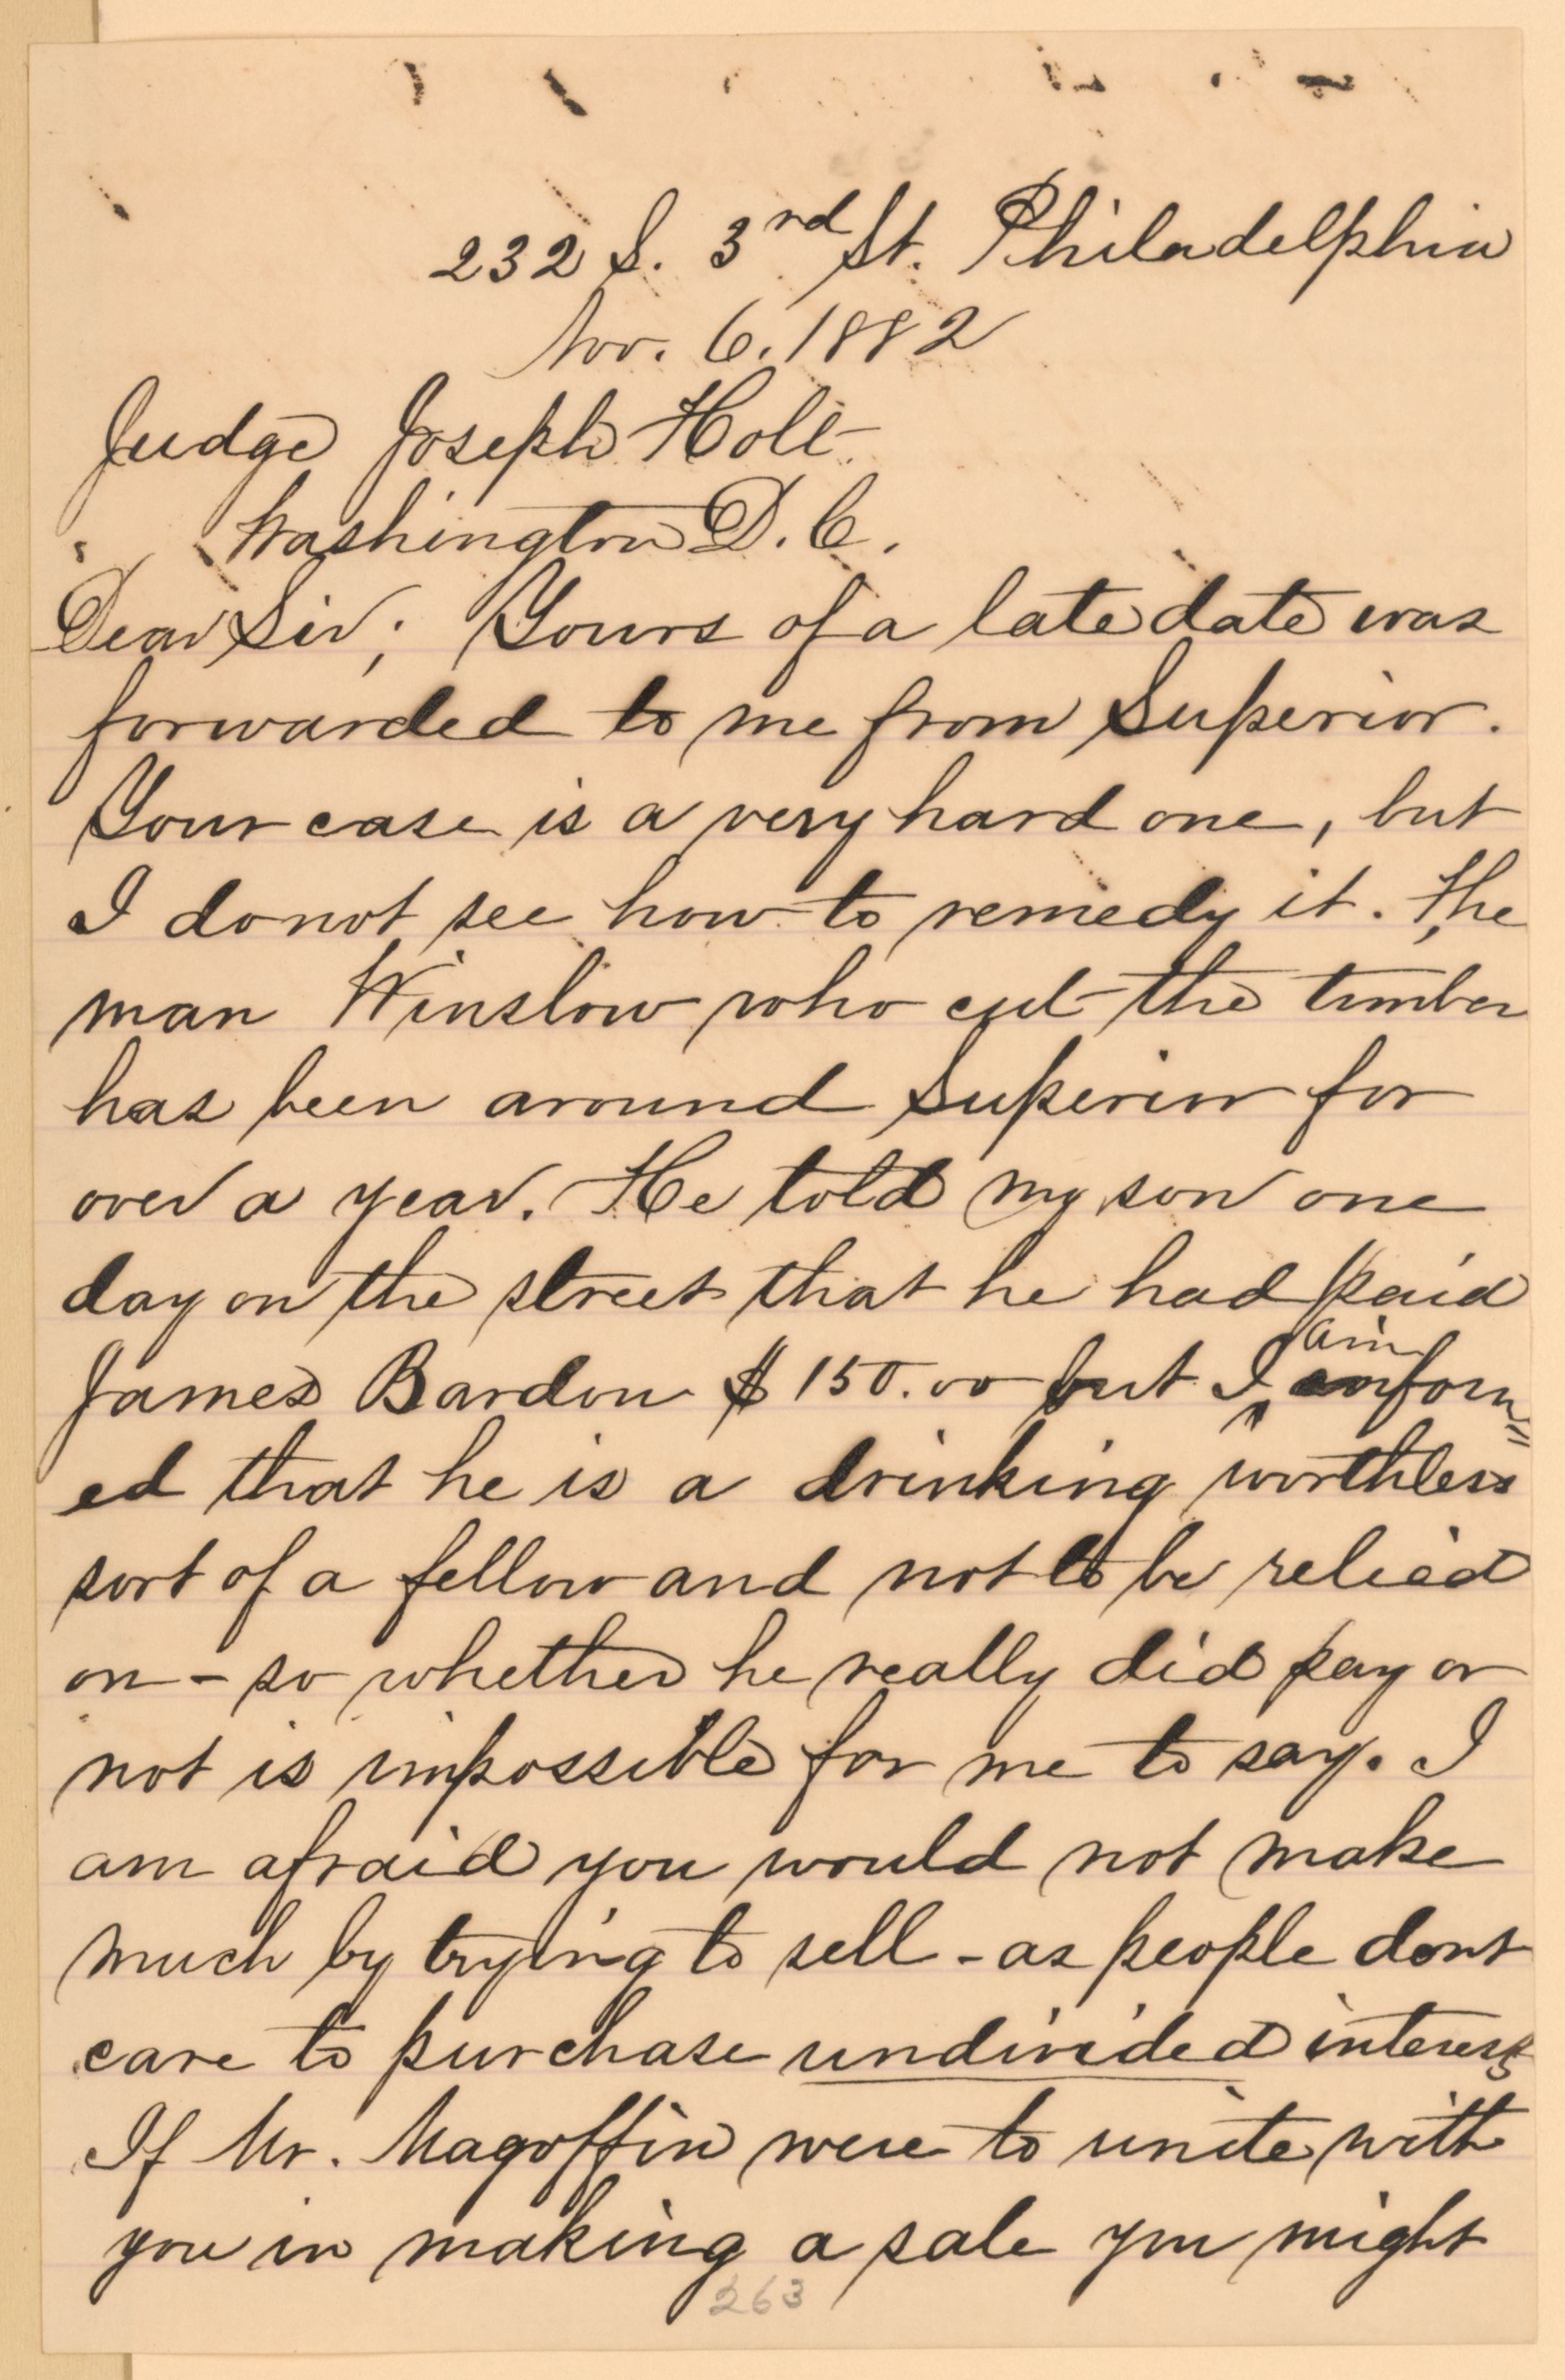 232 S. 3rd St. Philadelphia
Nov. 6. 1882
Judge Joseph Holt
Washington D. C.
Dear Sir; Yours of a late date was
forwarded to me from Superior.
Your case is a very hard one, but
I do not see how to remedy it. The
man Winslow who cut the timber
has been around Superior for
over a year. He told my son one
day on the street that he had paid
James Bardon $150.00 but I am inform=
ed that he is a drinking worthless
sort of a fellow and not to be relied
on - so whether he really did pay or
not is impossible for me to say. I
am afraid you would not make
much by trying to sell - as people dont
care to purchase undivided interests
If Mr. Magoffin were to unite with
you in making a sale you might
263